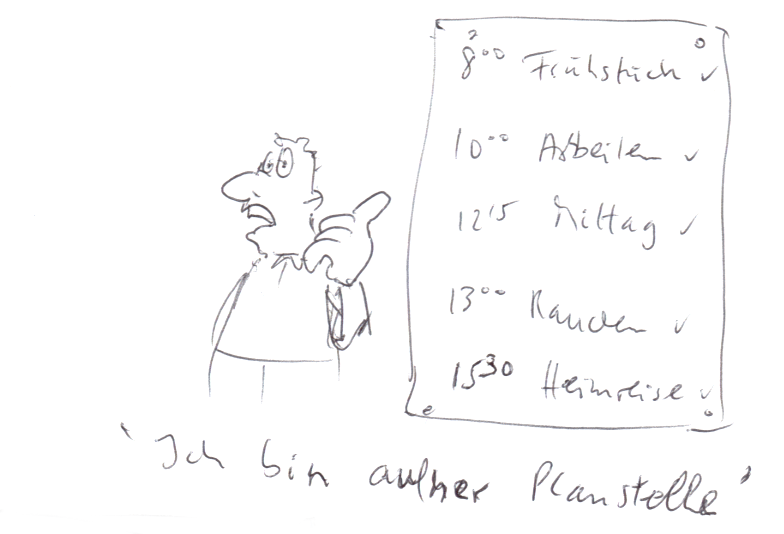 8⁰⁰ Frühstück ✓
10⁰⁰ Arbeiten ✓
12¹⁵ Mittag ✓
13⁰⁰ Rauchen ✓
15³⁰ Heimreise ✓
'Ich bin aufner Planstelle'